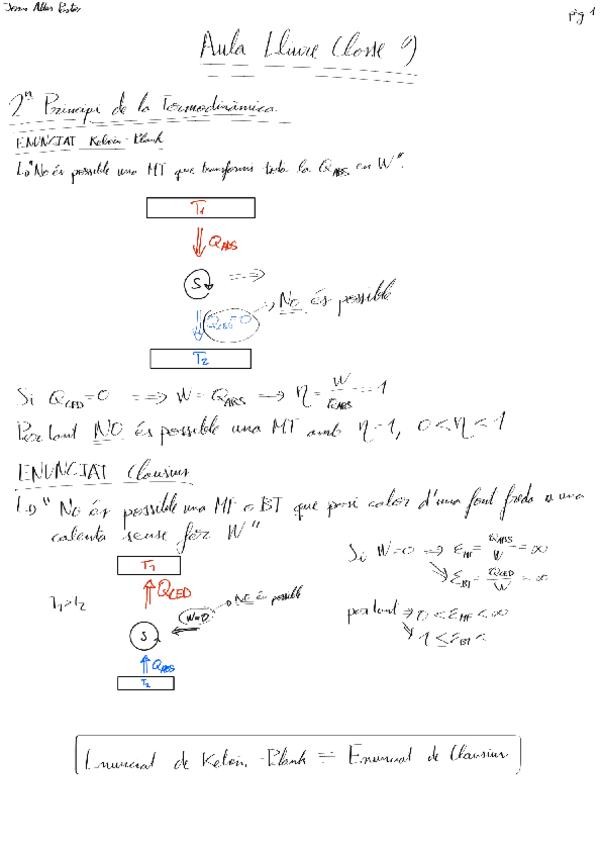 pàg 1
Aula Lliure Classe 9
2n Principi de la Termodinàmica
ENUNCIAT Kelvin-Plank
"No és possible una MT que transformi tota la QABS en W".
T1
QABS
S
QCED=0
NO és possible
T2
Si QCED=0 ==> W = QABS → η = W/QABS = 1
Per tant NO és possible una MT amb η=1, 0<η<1
ENUNCIAT Clausius
"No és possible una MF o BT que passi calor d'una font freda a una
calenta sense fer W"
Si W=0 → εMF = QABS/W = ∞
εBT = QCED/W = ∞
T1
QCED
T1>T2
W=0
NO és possible
S
QABS
T2
per tant → 0 < εMF < ∞
1 ≤ εBT <
Enunciat de Kelvin-Plank = Enunciat de Clausius